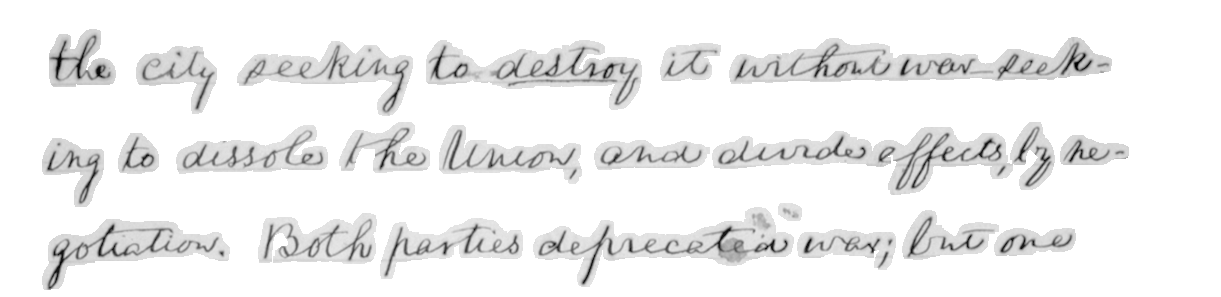 the city seeking to destroy it without war seek-
ing to dissole the Union, and divide effects, by ne-
gotiation. Both parties deprecated war; but one